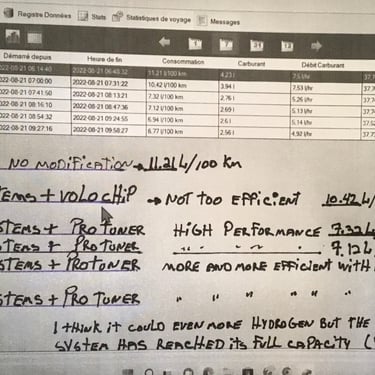 Registre Données Stats Statistiques de voyage Messages
1 7 31 12
Démarré depuis Heure de fin Consommation Carburant Débit Carburant
2022-08-21 06:14:40 2022-08-21 06:48:32 11,21 l/100 km 4,23 l 7,5 l/hr 37,
2022-08-21 07:00:00 2022-08-21 07:31:22 10,42 l/100 km 3,94 l 7,53 l/hr 37,7
2022-08-21 07:41:50 2022-08-21 08:13:21 7,32 l/100 km 2,76 l 5,26 l/hr 37,7
2022-08-21 08:16:10 2022-08-21 08:47:36 7,12 l/100 km 2,69 l 5,13 l/hr 37,74
022-08-21 08:54:32 2022-08-21 09:24:55 6,94 l/100 km 2,61 5,14 l/hr 37,
022-08-21 09:27:16 2022-08-21 09:58:27 6,77 l/100 km 2,56 l 4,92 l/hr 37,7
NO MODIFICATION → 11.21 L/100 Km
TEMS + VOLO CHIP → NOT TOO EFFICIENT 10.42 L/
STEMS + PRO TUNER HIGH PERFORMANCE 7.32 L
STEMS + PRO TUNER " " " 7.12 L
STEMS + PRO TUNER MORE AND MORE EFFICIENT WITH
STEMS + PRO TUNER " " " "
I THINK IT COULD EVEN MORE HYDROGEN BUT THE
SYSTEM HAS REACHED ITS FULL CAPACITY (